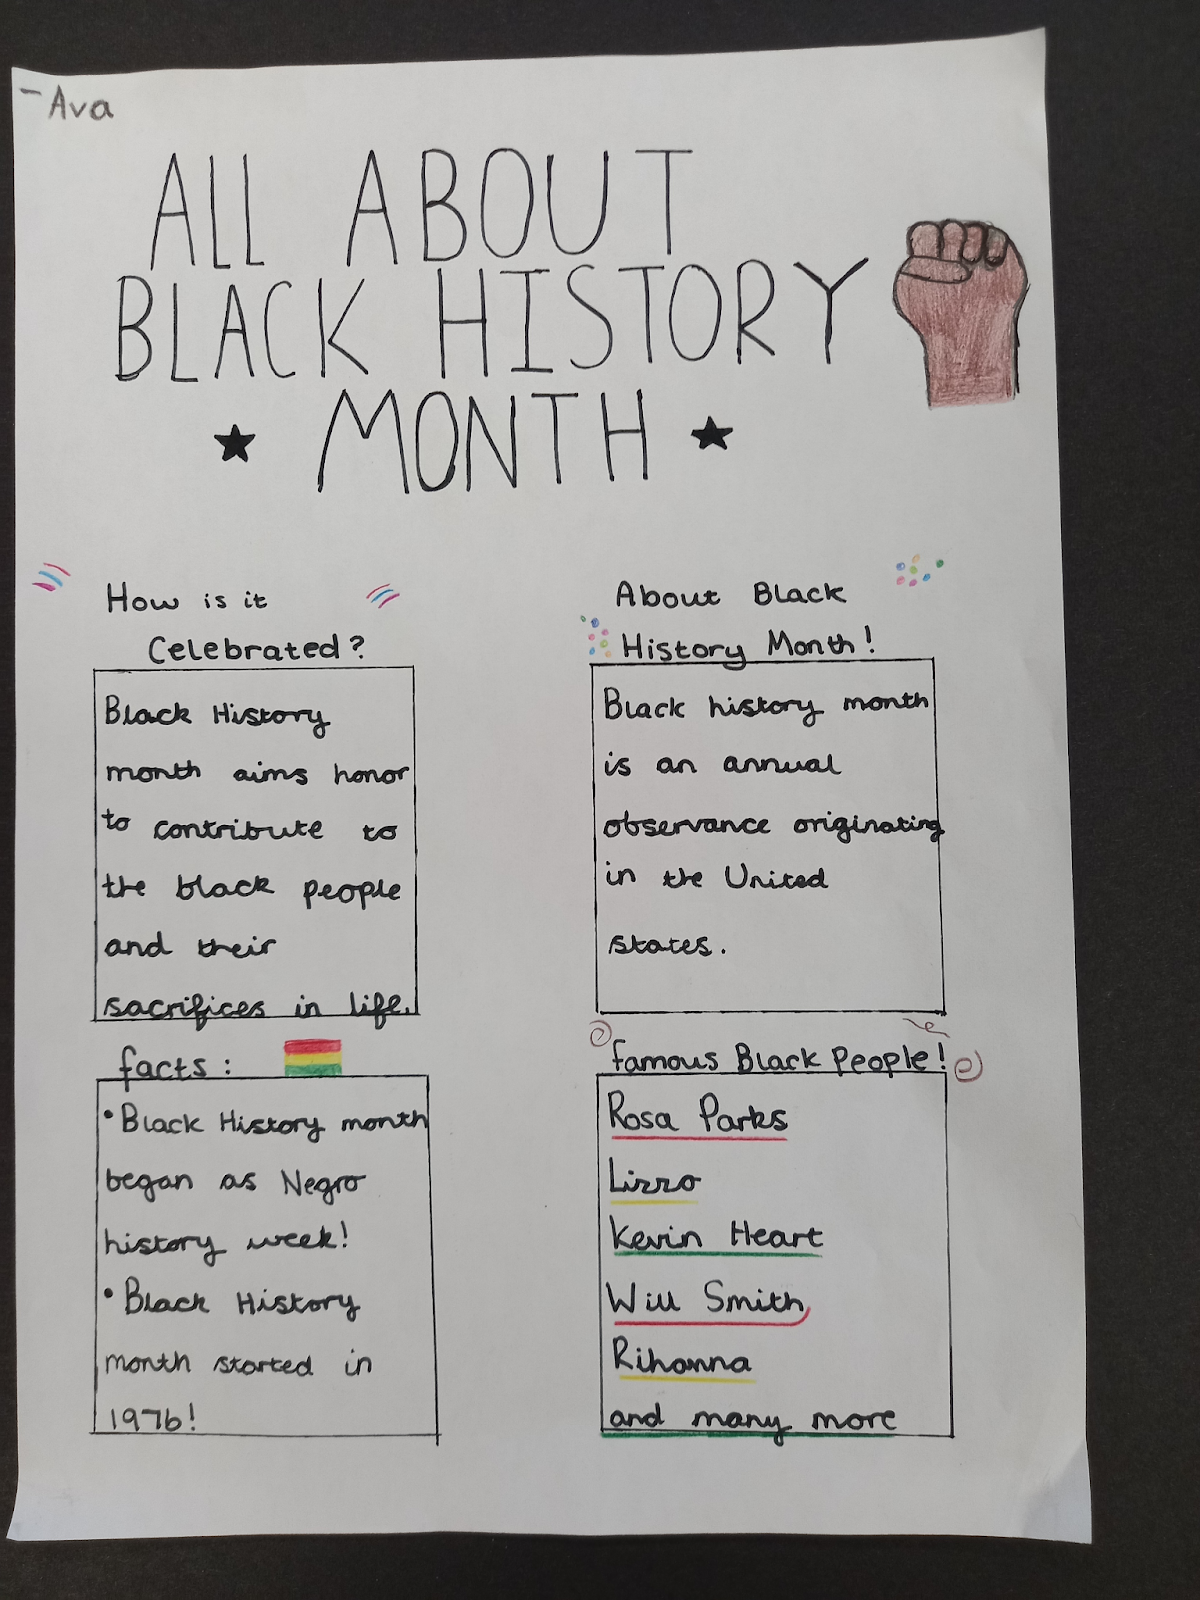 -Ava
ALL ABOUT
BLACK HISTORY
MONTH
How is it
Celebrated?
Black History
month aims honor
to contribute to
the black people
and their
sacrifices in life.
About Black
History Month!
Black history month
is an annual
observance originating
in the United
states.
facts:
•Black History month
began as Negro
history week!
•Black History
month started in
1976!
famous Black People!
Rosa Parks
Lizzo
Kevin Heart
Will Smith
Rihanna
and many more